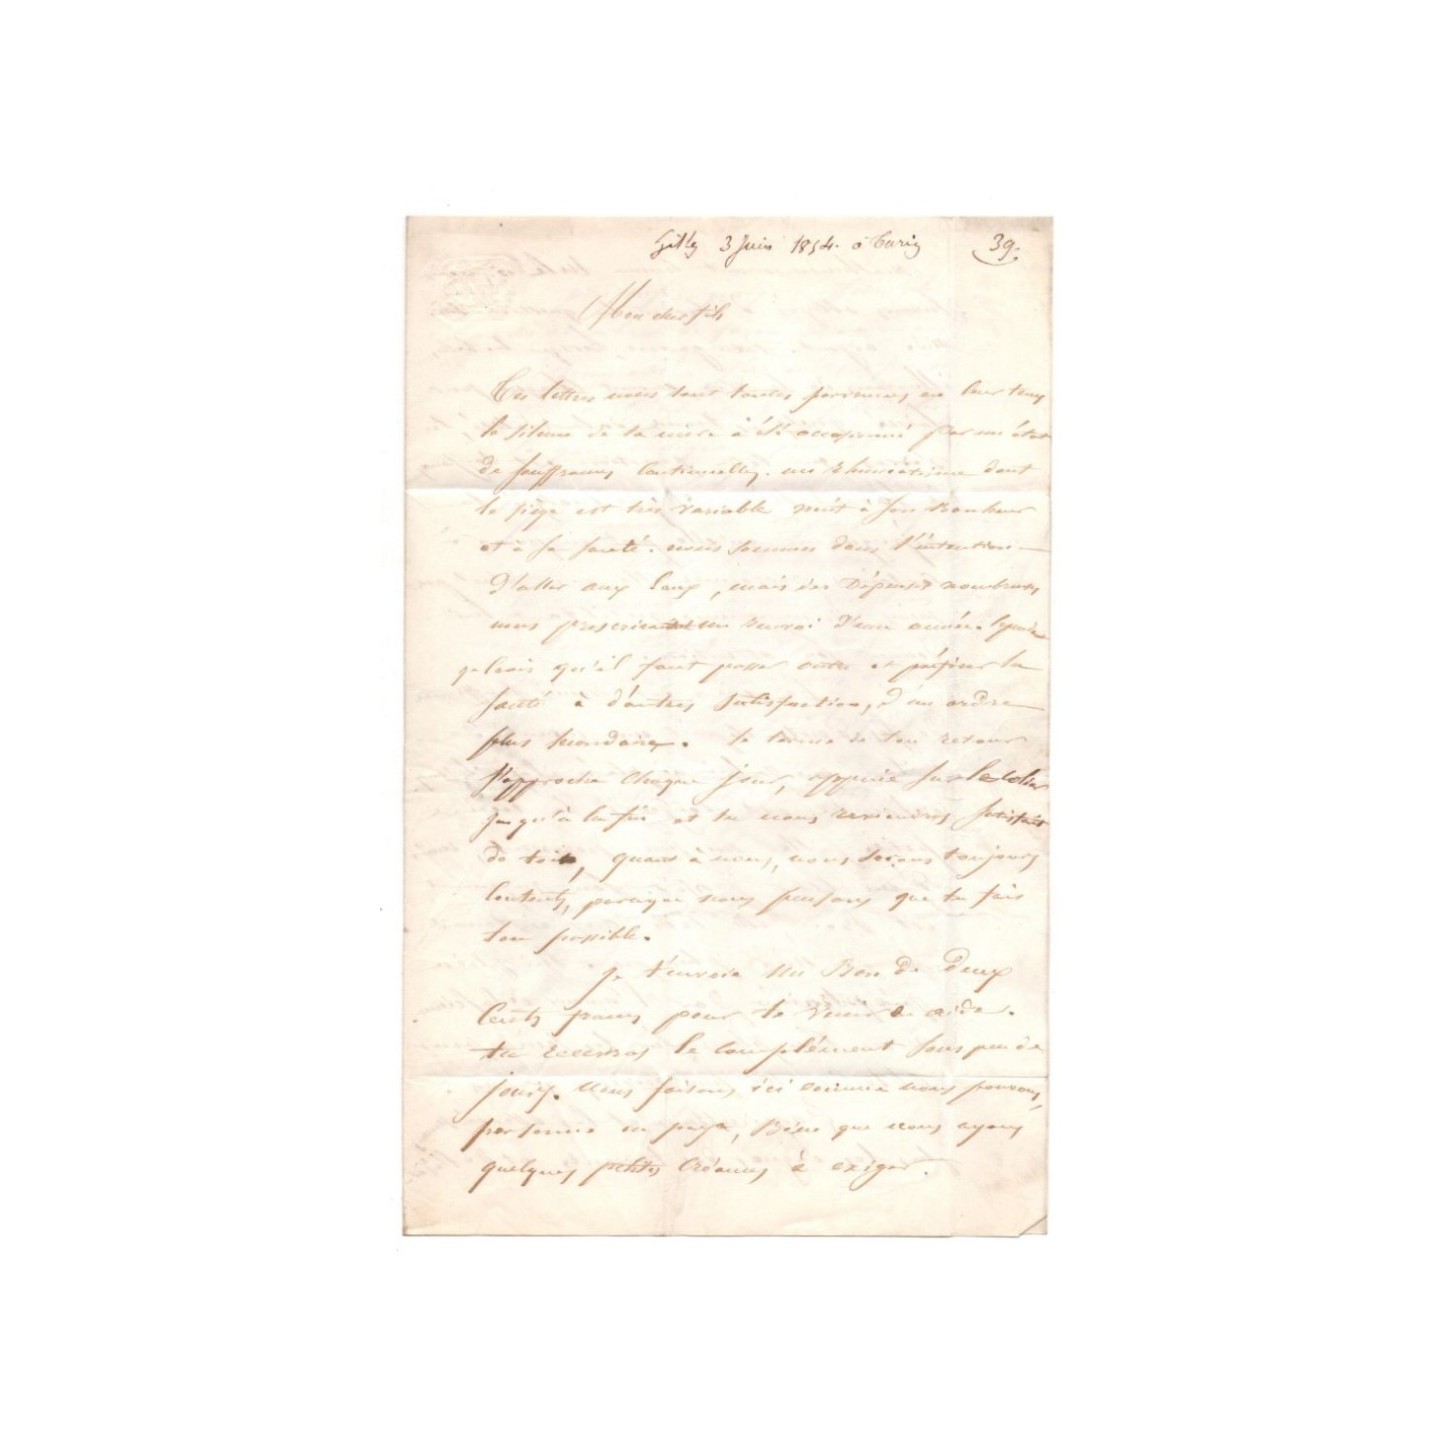 Gilly 3 Juin 1854. à Paris 39.
Mon cher fils
Tes lettres nous sont toutes parvenues en leur temps
le silence de ta mère a été occasionné par un état
de souffrances continuelles. un rhumatisme dont
le siège est très variable nuit à son bonheur
et à sa santé. nous sommes dans l'intention
d'aller aux Eaux, mais des dépenses nombreuses
nous un renvoi d'une année.
je crois qu'il faut passer outre et préférer la
santé à d'autres satisfactions, d'un ordre
plus secondaire. le terme de ton retour
s'approche chaque jour, appuie sur le colier
jusqu'à la fin et tu nous reviendras satisfait
de toi, quant à nous, nous serons toujours
contents, parceque nous pensons que tu fais
ton possible.
je t'envoie un Bon de Deux
Cents francs pour te venir en aide.
tu recevras le complément sous peu de
jours. Nous faisons ici comme nous pouvons,
personne ne paye, Bien que nous ayons
quelques petites Créances à exiger.